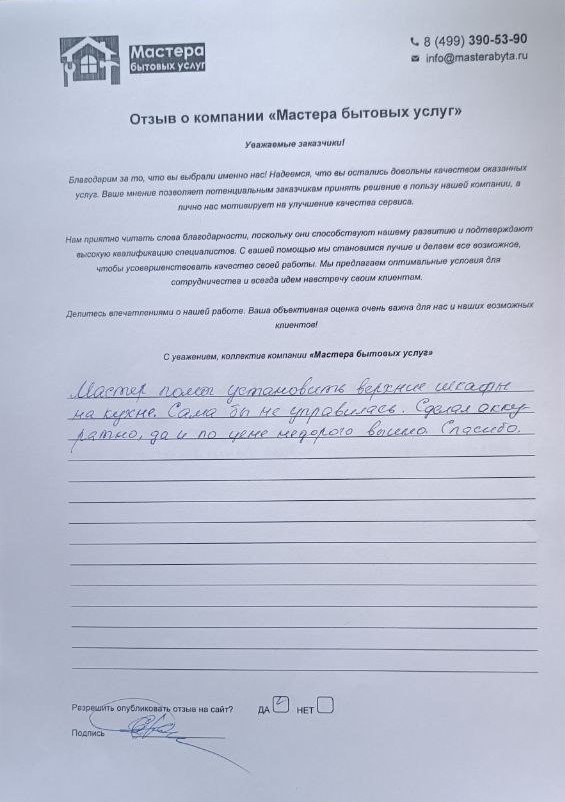 Мастера
бытовых услуг
8 (499) 390-53-90
info@masterabyta.ru
Отзыв о компании «Мастера бытовых услуг»
Уважаемые заказчики!
Благодарим за то, что вы выбрали именно нас! Надеемся, что вы остались довольны качеством оказанных
услуг. Ваше мнение позволяет потенциальным заказчикам принять решение в пользу нашей компании, а
лично нас мотивирует на улучшение качества сервиса.
Нам приятно читать слова благодарности, поскольку они способствуют нашему развитию и подтверждают
высокую квалификацию специалистов. С вашей помощью мы становимся лучше и делаем все возможное,
чтобы усовершенствовать качество своей работы. Мы предлагаем оптимальные условия для
сотрудничества и всегда идем навстречу своим клиентам.
Делитесь впечатлениями о нашей работе. Ваша объективная оценка очень важна для нас и наших возможных
клиентов!
С уважением, коллектив компании «Мастера бытовых услуг»
Мастер помог установить верхние шкафы
на кухне. Сама бы не управилась. Сделал акку-
ратно, да и по цене недорого вышло. Спасибо.
Разрешить опубликовать отзыв на сайт? ДА НЕТ
Подпись